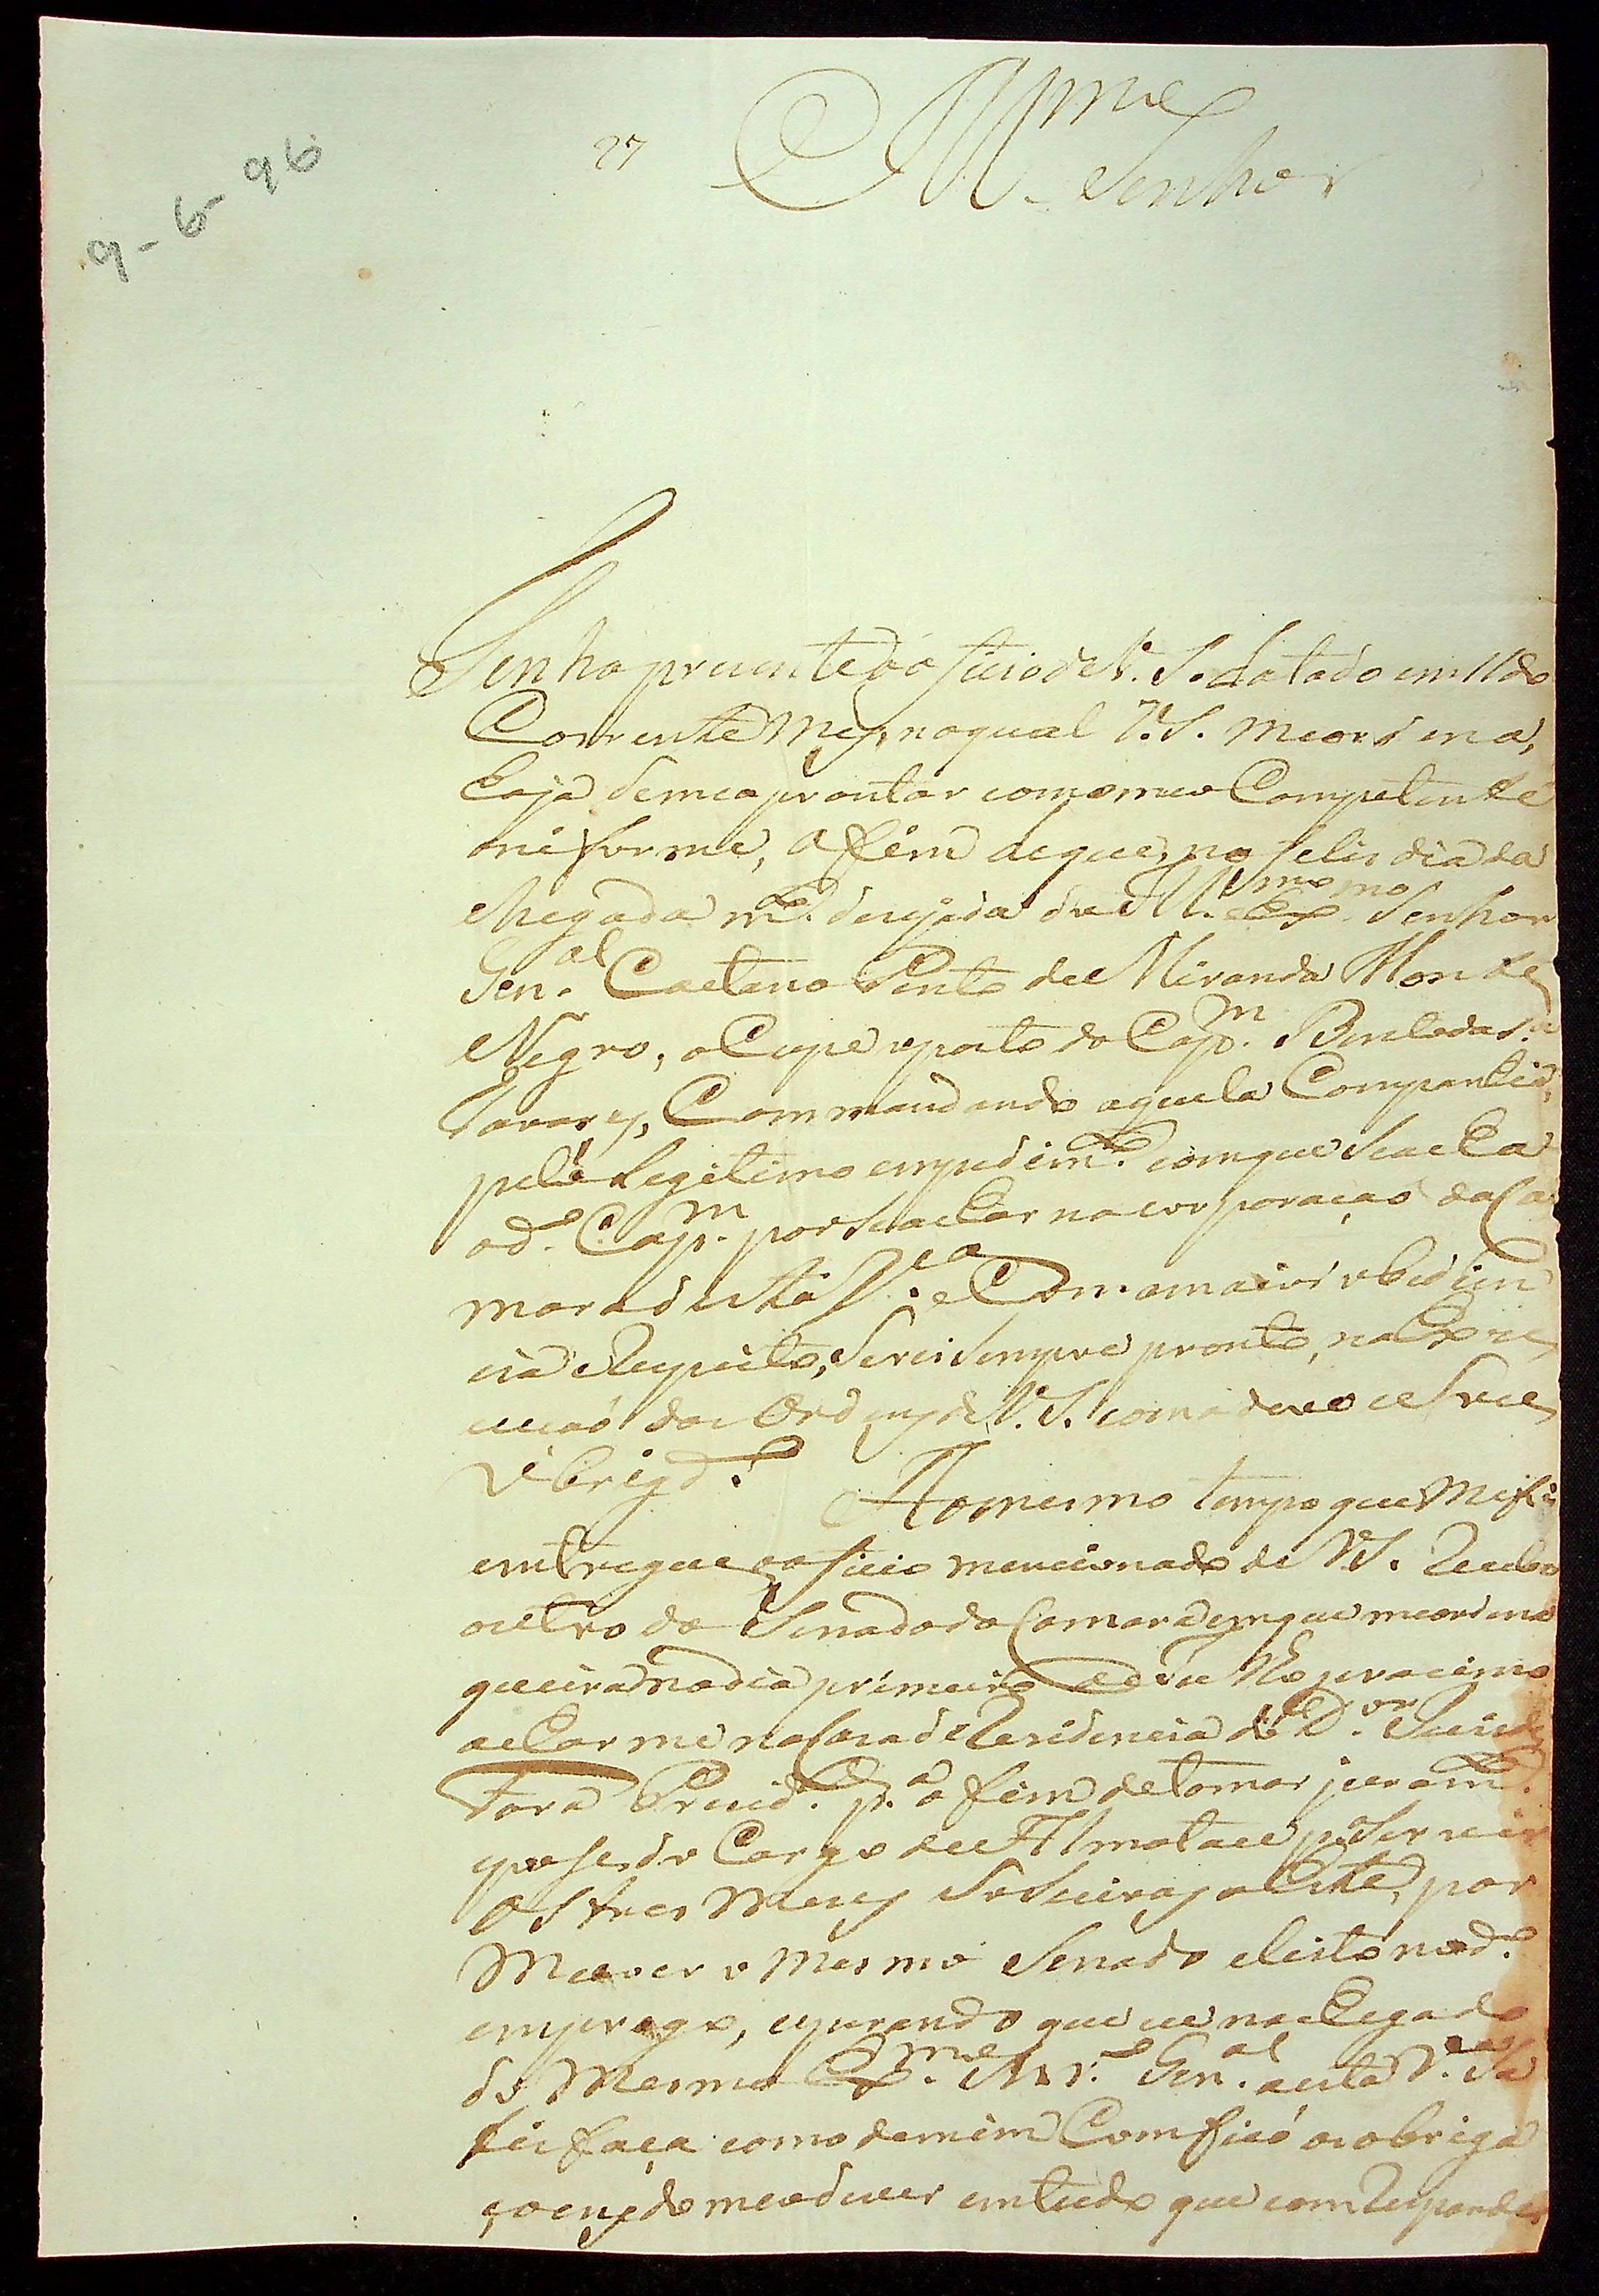 9-6-96
27
Illmo
Senhor
Tenho prezente o officio de V. S. datado em 11 do
Corrente Mes, no qual V. S. me ordena,
haja de me aprontar com o meo Competente
niforme, a fim de que, no felis dia da
chegada mto. dezejada do Illmo. e Exmo. Senhor
Genal. Caetano Pinto de Miranda Monte
Negro, ocupe o posto do Capm. Bento da Sa.
Tavares, Commandando aquela Companhia,
pelo Legitimo empedimto. com que se acha
o do. Capm. por se achar na corporação da Ca
mara desta Va. e Com a maior obidien
cia e Respeito, Serei Sempre pronto, na Exze
cução das Ordens de V. S. como devo e Sou
obrigdo.
Ao mesmo tempo que me foi
entregue o officio mencionado de V. S. Recebo
outro do Senado da Camara em que me ordena
queira no dia primeiro de proximo
achar me na Caza de Rezidencia do Dor. Juis de
Fora Prezide. pa. o fim de tomar juramto.
e posse do Cargo de Almotace pa. Servir
os tres Mezes por
Me aver o Mesmo Senado eleito no do.
emprego, esperando que eu na chegada
do Mesmo Exmo. Snr. Genal. a esta Va. Sa
tisfaça como de mim Comfião as obriga
çoens do meo dever em tudo que comResponder